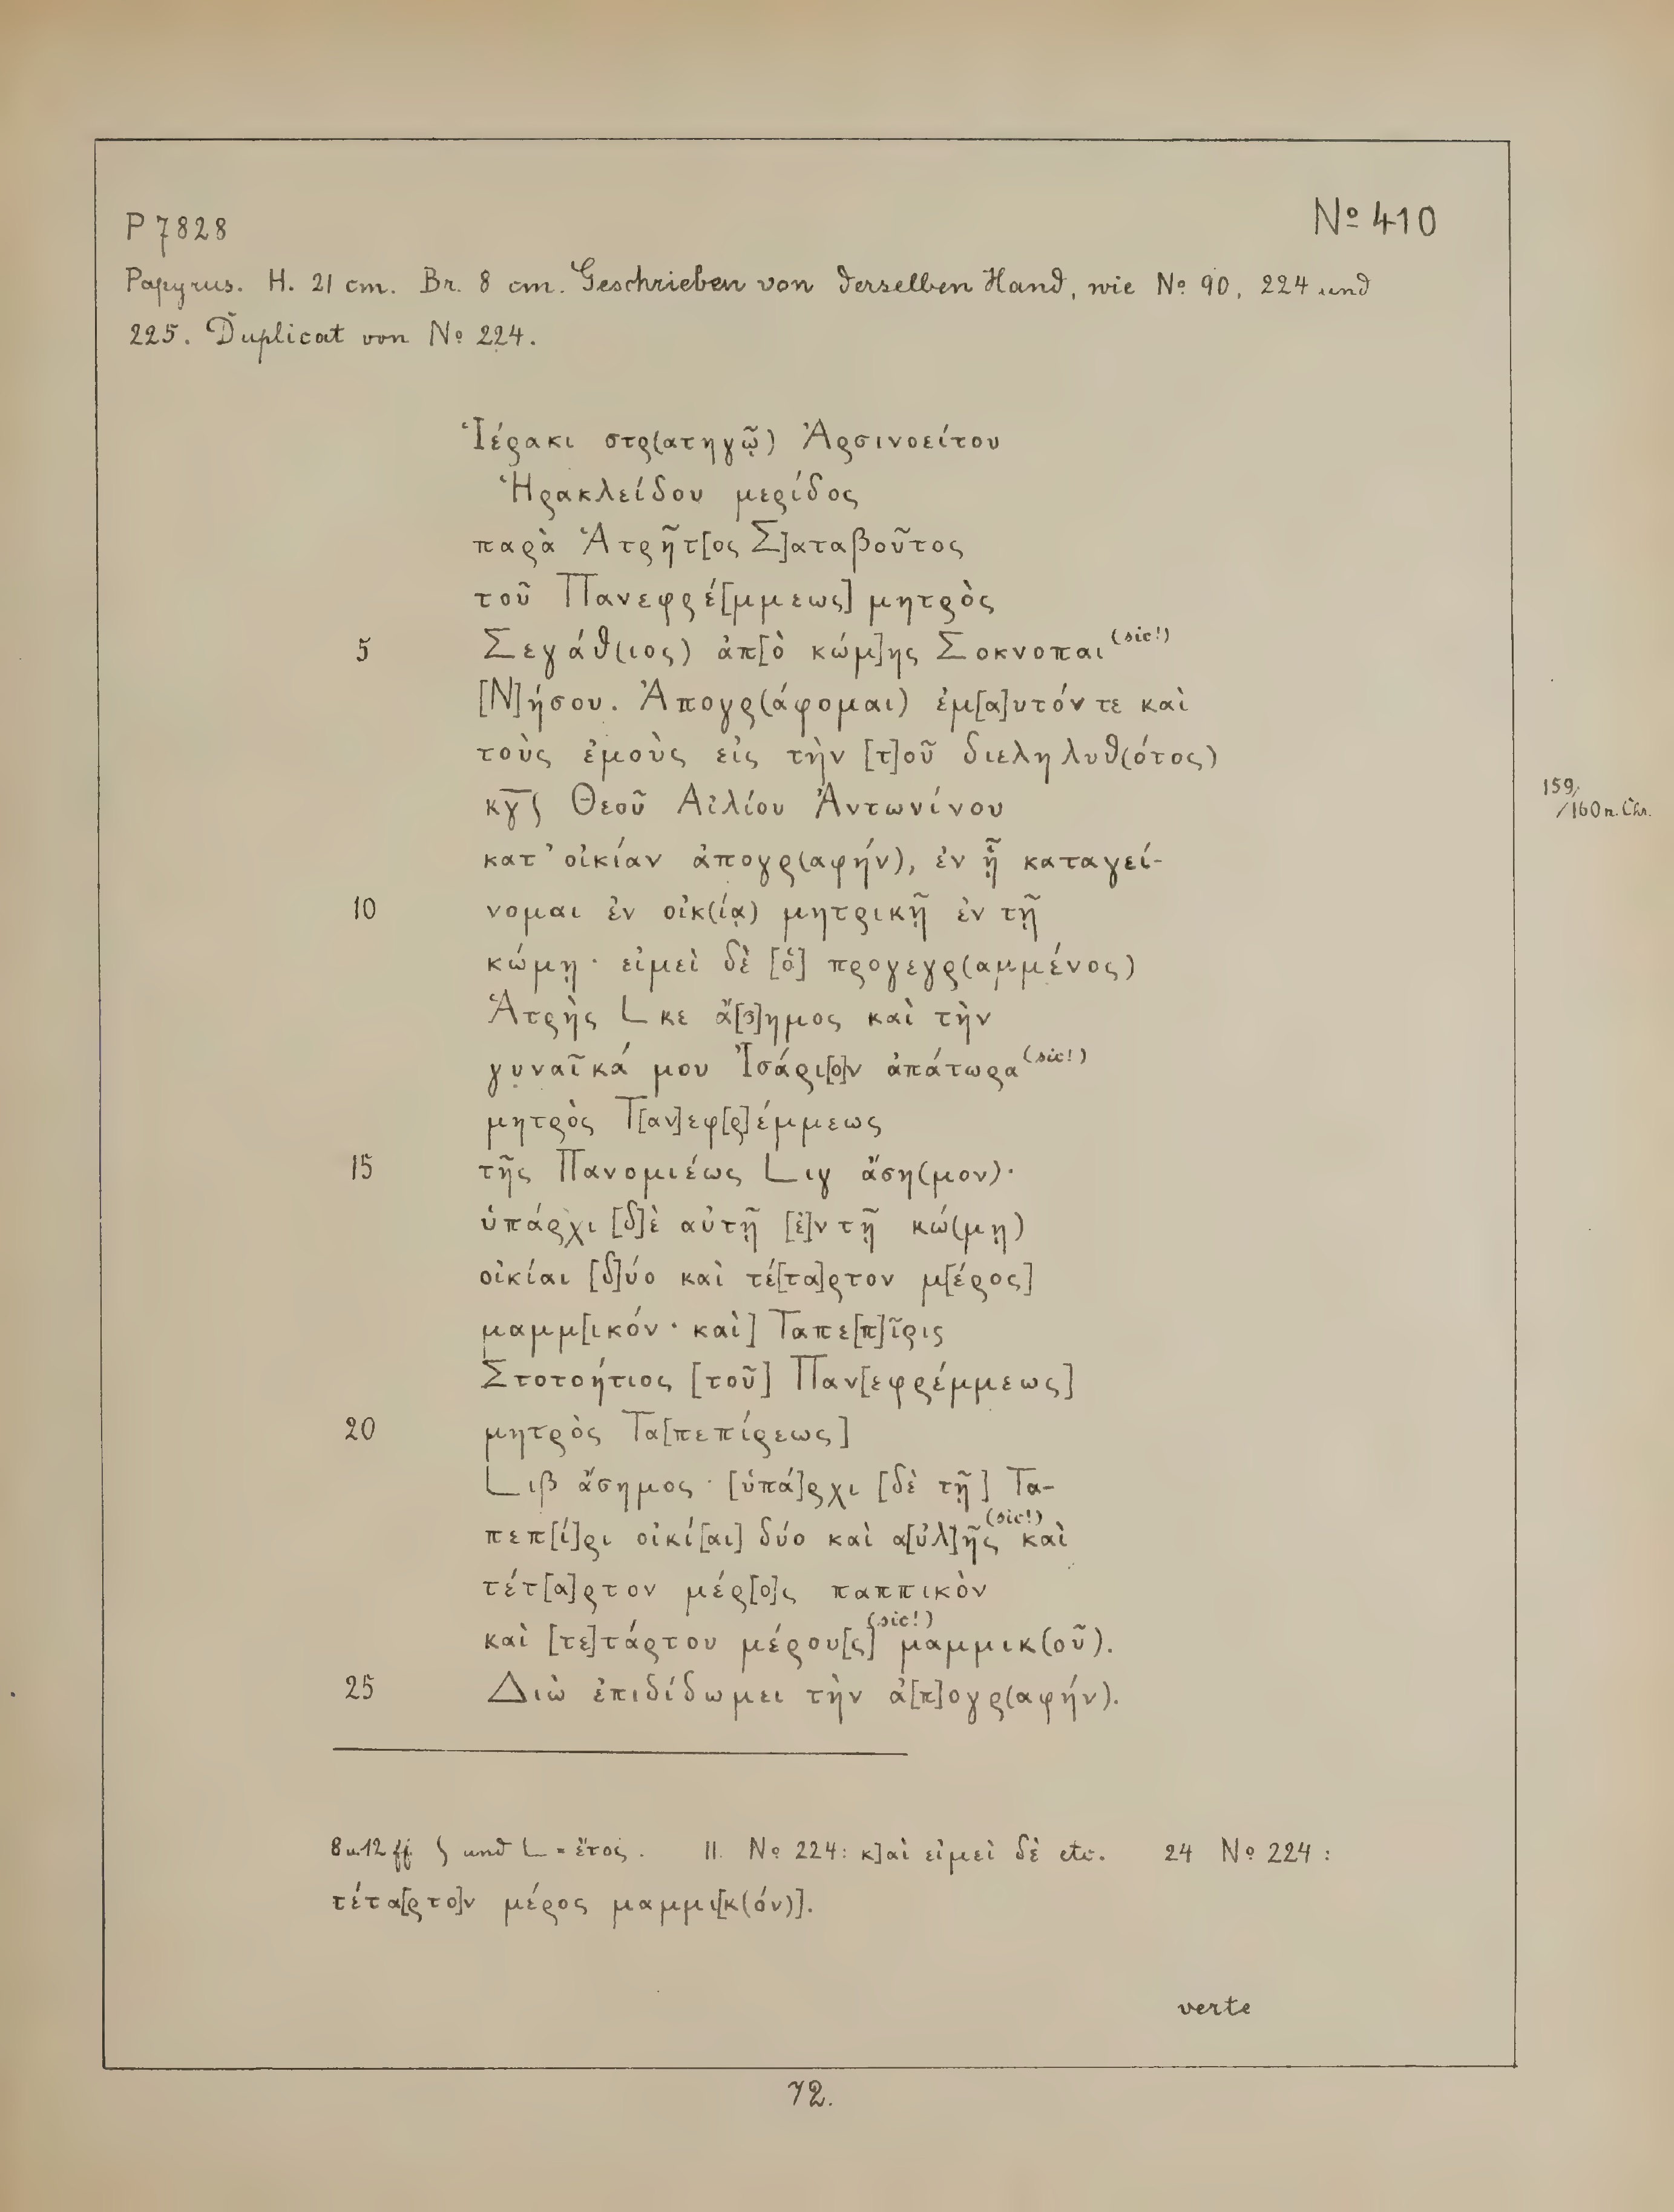 P 7828
No 410
Papyrus. H. 21 cm. Br. 8 cm. Geschrieben von derselben Hand, wie No 90, 224 und
225. Duplicat von No 224.
Ἱέρακι στρ(ατηγῷ) Ἀρσινοείτου
Ἡρακλείδου μερίδος
παρὰ Ἁτρῆτ[ος Σ]αταβοῦτος
τοῦ Πανεφρέ[μμεως] μητρὸς
5 Σεγάθ(ιος) ἀπ[ὸ κώμ]ης Σοκνοπαι (sic!)
[Ν]ήσου. Ἀπογρ(άφομαι) ἐμ[α]υτόν τε καὶ
τοὺς ἐμοὺς εἰς τὴν [τ]οῦ διεληλυθ(ότος)
κγ̅ʃ Θεοῦ Αἰλίου Ἀντωνίνου
159/
/160 n. Chr.
κατ' οἰκίαν ἀπογρ(αφήν), ἐν ᾗ καταγεί-
10 νομαι ἐν οἰκ(ίᾳ) μητρικῇ ἐν τῇ
κώμῃ · εἰμεὶ δὲ [ὁ] προγεγρ(αμμένος)
Ἁτρὴς L κε ἄ[σ]ημος καὶ τὴν
γυναῖκά μου Ἰσάρι[ο]ν ἀπάτωρα (sic!)
μητρὸς Τ[αν]εφ[ρ]έμμεως
15 τῆς Πανομιέως L ιγ ἄση(μον)·
ὑπάρχι [δ]ὲ αὐτῇ [ἐ]ν τῇ κώ(μῃ)
οἰκίαι [δ]ύο καὶ τέ[τα]ρτον μ[έρος]
μαμμ[ικόν · καὶ] Ταπε[π]ῖρις
Στοτοήτιος [τοῦ] Παν[εφρέμμεως]
20 μητρὸς Τα[πεπίρεως]
L ιβ ἄσημος · [ὑπά]ρχι [δὲ τῇ] Τα-
πεπ[ί]ρι οἰκί[αι] δύο καὶ α[ὐλ]ῆς (sic!) καὶ
τέτ[α]ρτον μέρ[ο]ς παππικὸν
καὶ [τε]τάρτου μέρου[ς] (sic!) μαμμικ(οῦ).
25 Διὼ ἐπιδίδωμει τὴν ἀ[π]ογρ(αφήν).
8 u. 12 ff ʃ und L = ἔτος. 11. No 224: κ]αὶ εἰμεὶ δὲ etc. 24 No 224:
τέτα[ρτο]ν μέρος μαμμι[κ(όν)].
verte
72.